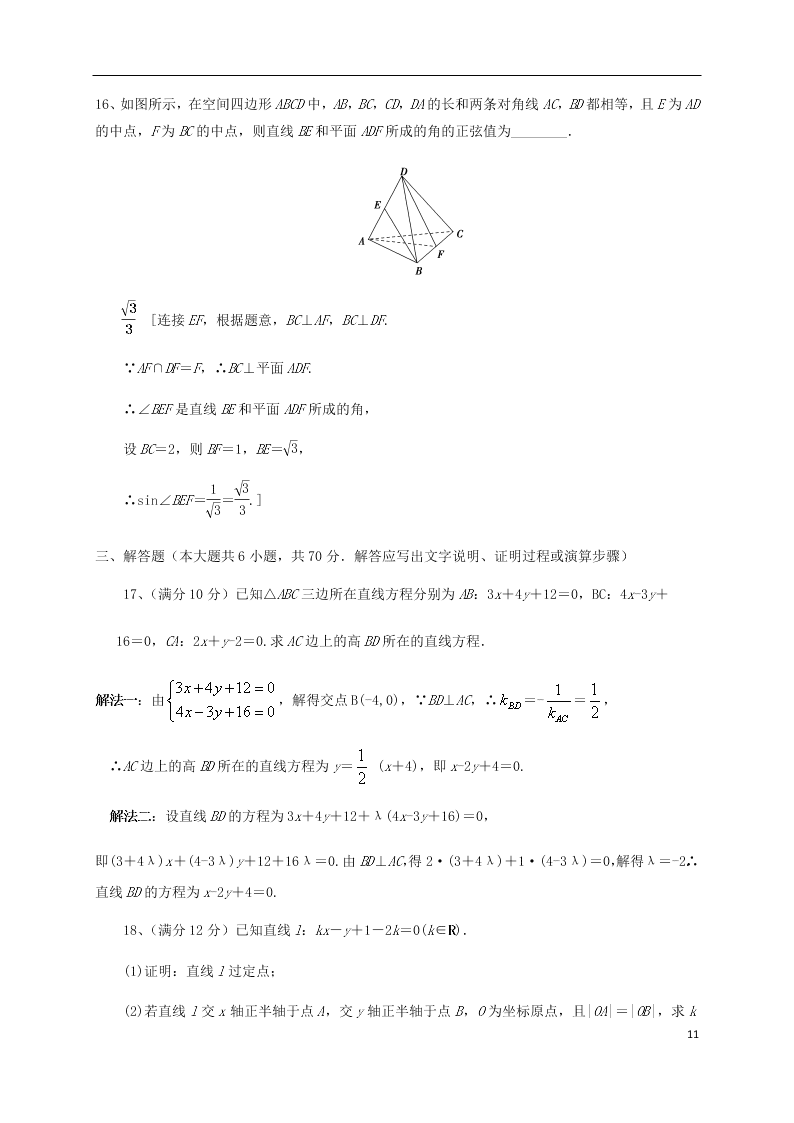 16、如图所示，在空间四边形 ABCD 中，AB，BC，CD，DA 的长和两条对角线 AC，BD 都相等，且 E 为 AD
的中点，F 为 BC 的中点，则直线 BE 和平面 ADF 所成的角的正弦值为________．
D
E
A
C
F
B
√3/3 [连接 EF，根据题意，BC⊥AF，BC⊥DF.
∵AF∩DF＝F，∴BC⊥平面 ADF.
∴∠BEF 是直线 BE 和平面 ADF 所成的角，
设 BC＝2，则 BF＝1，BE＝√3，
∴sin∠BEF＝1/√3＝√3/3.]
三、解答题（本大题共 6 小题，共 70 分．解答应写出文字说明、证明过程或演算步骤）
17、（满分 10 分）已知△ABC 三边所在直线方程分别为 AB：3x＋4y＋12＝0，BC：4x-3y＋
16＝0，CA：2x＋y-2＝0.求 AC 边上的高 BD 所在的直线方程.
解法一：由{3x+4y+12=0 4x-3y+16=0，解得交点 B(-4,0)，∵BD⊥AC，∴k_BD＝-1/k_AC＝1/2，
∴AC 边上的高 BD 所在的直线方程为 y＝1/2 (x＋4)，即 x-2y＋4＝0.
解法二：设直线 BD 的方程为 3x＋4y＋12＋λ(4x-3y＋16)＝0，
即(3＋4λ)x＋(4-3λ)y＋12＋16λ＝0.由 BD⊥AC,得 2·(3＋4λ)＋1·(4-3λ)＝0,解得λ＝-2∴
直线 BD 的方程为 x-2y＋4＝0.
18、（满分 12 分）已知直线 l：kx－y＋1－2k＝0(k∈R)．
(1)证明：直线 l 过定点；
(2)若直线 l 交 x 轴正半轴于点 A，交 y 轴正半轴于点 B，O 为坐标原点，且|OA|＝|OB|，求 k
11